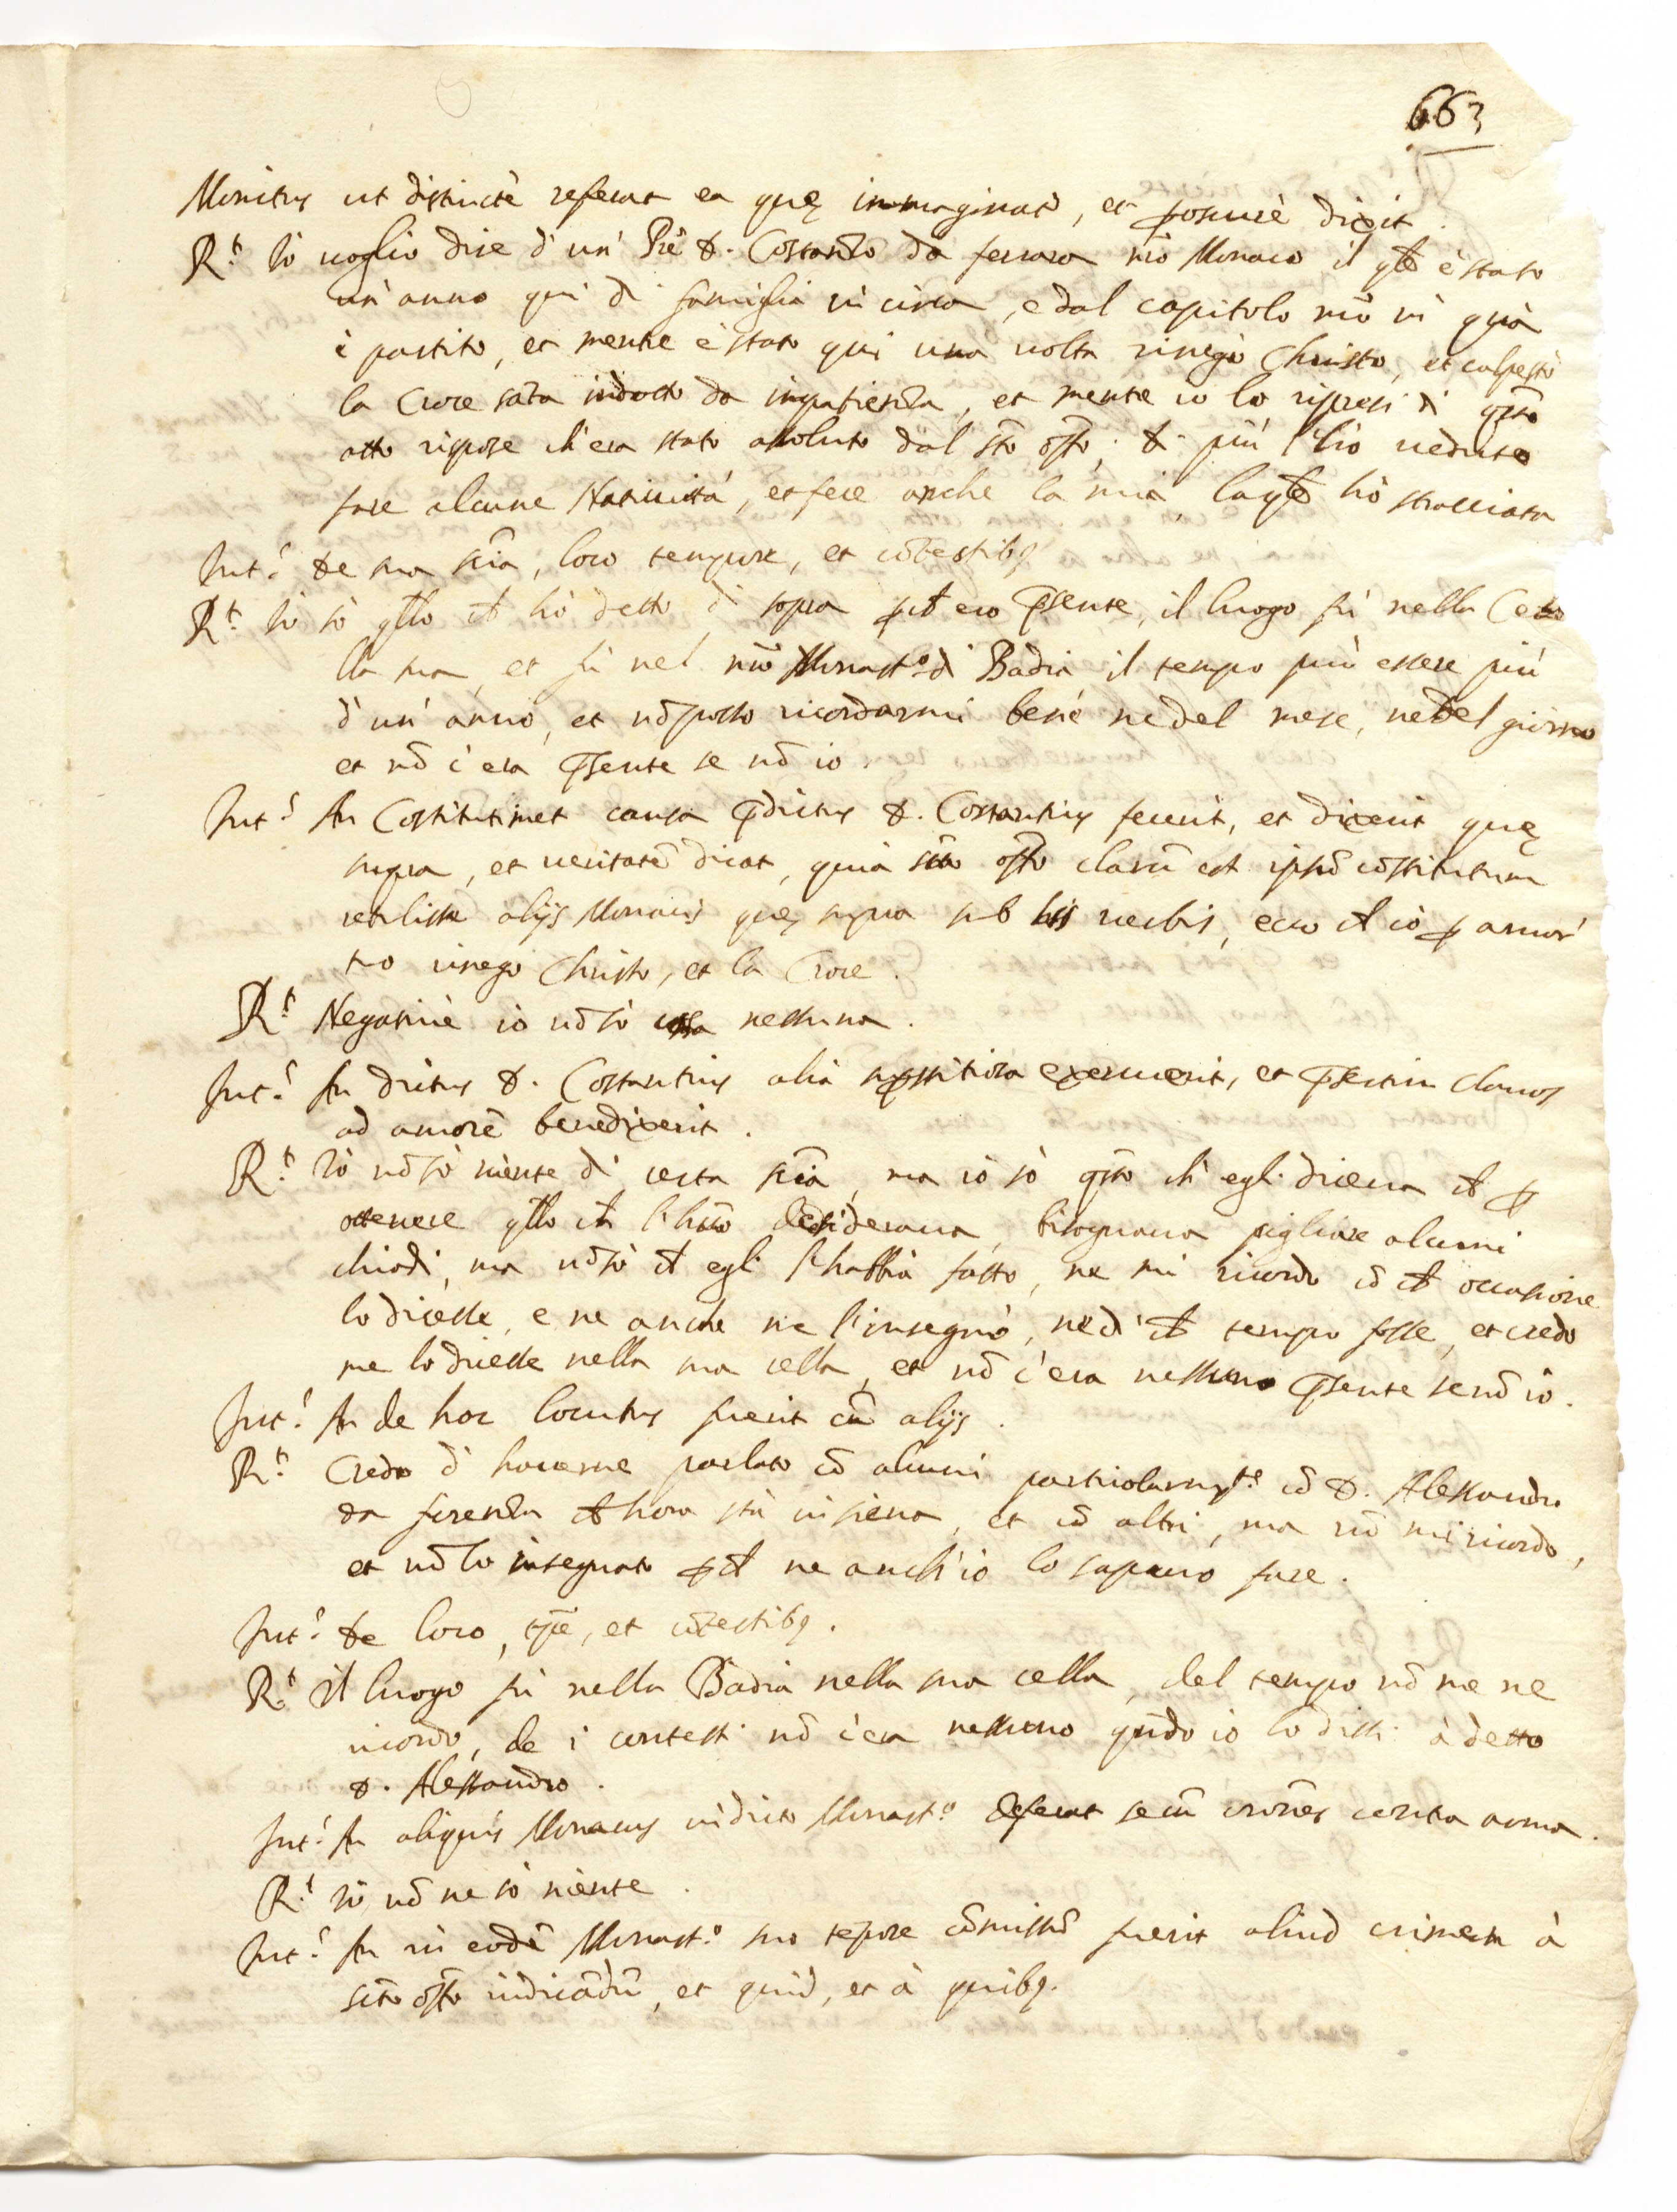 663
Monitus ut distinctè referat ea quę immaginat, et  dixit.
R.t Io voglio dire d'un Prē D. Costanzo da ferrara nrō Monaco il qle è stato
un' anno qui di famiglia in circa, e dal capitolo nrō in quà
è partito, et mentre è stato qui una volta rinegò Christo, et calpestò
la Croce santa indotto da impatienza, et mentre io lo ripresi di qsto
atto rispose ch'era stato assoluto dal sto offo. Di più l'hò veduto
fare alcune Natività, et fece anche la mia, la qle hò stracciata
Int.s De sua sciā, loco tempore, et cōtestibq
R.t Io sò qllo ch hò detto di sopra p ch ero pſente, il luogo fù nella Ce
lla sua, et fù nel nrō Monast.o di Badia il tempo può essere più
d'un' anno, et nō posso ricordarmi bene ne del mese, ne del giorno
et nō c'era pſente se nō io.
Int.s An Costitutimet causa pdictus D. Costantius fecerit, et dixerit quę
supra, et veritatē dicat, quia scto offo clarū est ipsū cōstitutum
retulisse alijs Monacis quę supra sub his verbis, ecco ch io p amor
tuo rinego Christo, et la Croce.
R.t Negativè io nō sò cosa nessuna.
Int.s An dictus D. Costantius alia supstitiosa exercuerit, et pſertim clavos
ad amorē benedixerit.
R.t Io nō sò niente di certa sciā, ma io sò qsto ch' egli diceva ch p
ottenere qllo ch l'huō desiderava, bisognava pigliare alcuni
chiodi, ma nō sò ch egli l'habbia fatto, ne mi ricordo cō ch occasione
lo dicesse, e ne anche me l'insegnò, ne di ch tempo fosse, et credo
me lo dicesse nella sua cella, et nō c'era nessuno pſente se nō io.
Int.s An de hoc locutus fuerit cū alijs.
R.t Credo d' haverne parlato cō alcuni particolarmte cō D. Alessandro
da firenza ch hora stà in siena, et cō altri, ma nō mi ricordo,
et nō lo insegnato p ch ne anch'io lo sapevo fare.
Int.s De loco, tpē, et cōtestibq.
R.t Il luogo fù nella Badia nella sua cella, del tempo nō me ne
ricordo, de i contesti nō c'era nessuno qñdo io lo dissi à detto
D. Alessandro.
Int.s An aliquis Monacus in dicto Monast.o deferat secū  contra arma.
R.t Io nō ne sò niente.
Int.s An in eodē Monast.o suo tēpore cōmissū fuerit aliud crimen à
scto offo iudicādū, et quid, et à quibq.